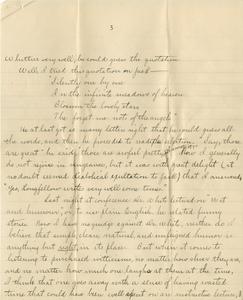 3
Whittier very well, he could guess the quotation.
Well I tried this quotation on
"Silently one by one
In the infinite meadows of heaven
Blossom the lovely stars
The forget-me-nots of the angels"
He at last got so many letters right that he could guess all
the words, and then he proceeded to read the "Say, those
are great" he said, those are awful pretty." Now I generally
do not rejoice in vengeance, but it was with great delight (it
no doubt seemed diabolical exultation to) that I answered,
"Yes, Longfellow writes very well some times."
Last night at conference Dr. White lectured on Wit
and humour, or, to use plain English, he related funny
stories. Now I have no grudge against Dr. White, neither do I
believe that simple, clean, natural, and unforced humour is
anything but right, in its place. But when it comes to
listening to purchased witticisms, no matter how
and no matter how much one laughs at them at the time,
I think that one goes away with a sense of having wasted
time that could have been well spent on an instructive lecture